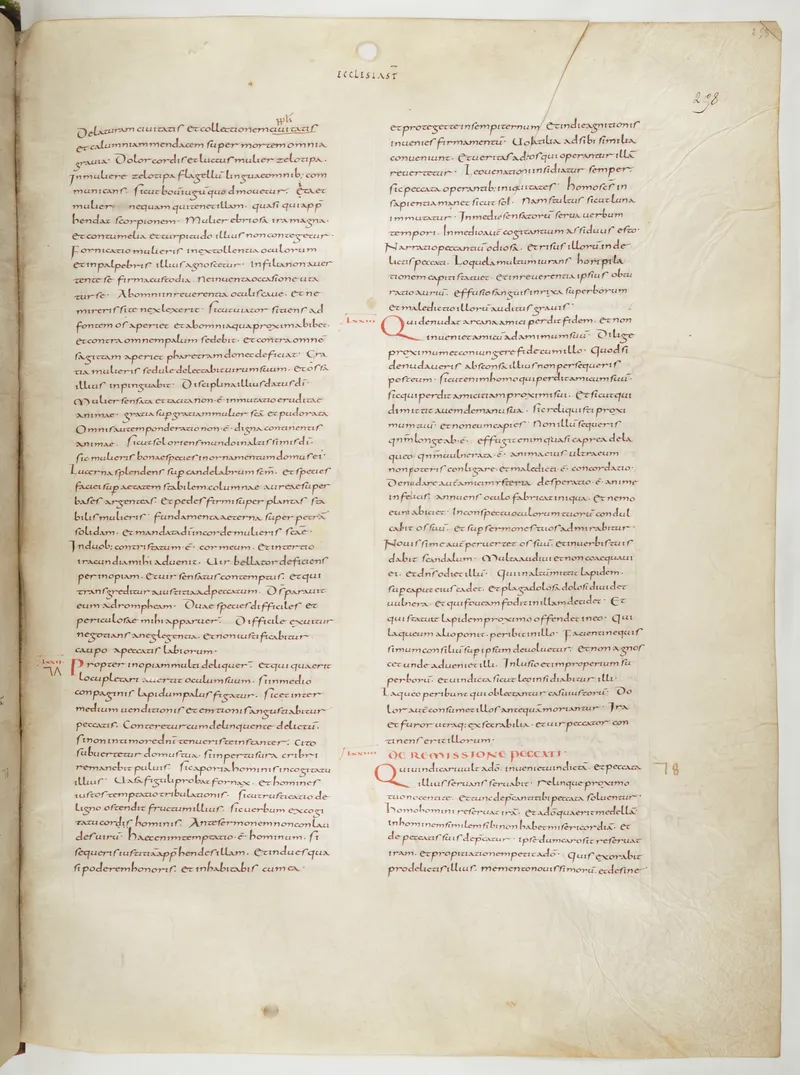 ECCLESIAST̄
298
Delaturam ciuitatis et collectionem populi
et calumniam mendacem super mortem omnia
grauia · Dolor cordis et luctus mulier zelotipa ·
In muliere zelotipa flagellū linguae omnib; com
municans · sicut boū iugū quod mouetur · ita et
mulier nequam qui tenet illam quasi qui app
hendat scorpionem · Mulier ebriosa ira magna ·
et contumelia et turpitudo illius non contegetur ·
Fornicatio mulieris in extollentia oculorum
et in palpebris illius agnoscetur · In filia non auer
tente se firma custodia · ne inuenta occasione uta
tur se · Ab omni inreuerentia oculis caue · et ne
mireris si te neglexerit · sicut uiator sitiens ad
fontem os aperiet et ab omni aqua proxima bibet ·
et contra omnem palum sedebit · et contra omnē
sagittam aperiet pharetram donec deficiat · Gra
tia mulieris sedule delectabit uirum suum · et ossa
illius inpinguabit · Disciplina illius datus dī ·
Mulier sensata et tacita non ·ē· inmutatio eruditae
animae · gratia sup gratiam mulier scā et pudorata
Omnis autem ponderatio non ·ē· digna continentis
animae · sicut sol oriens mundo in altissimis dī ·
sic mulieris bonae species in ornamentum domus ei'
Lucerna splendens sup candelabrum scm̄ · et species
faciei sup aetatem stabilem columnae aureae super
bases argenteas · Et pedes firmi super plantas sta
bilis mulieris · fundamenta aeterna super petrā
solidam · et mandata dī in corde mulieris scāe ·
In duob; contristatum ·ē· cor meum · et in tertio
iracundia mihi aduenit · Uir bellator deficiens
per inopiam · et uir sensatus contemptus · et qui
transgreditur a iustitia ad peccatum · Ds parauit
eum ad rompheam · Duae species difficiles et
periculosae mihi apparuer · Difficile exuitur
negotians a neglegentia · et non iustificabitur
caupo a peccatis labiorum ·
Propter inopiam multi deliquer · et qui quaerit
locupletari auertit oculum suum · sic in medio
compaginis lapidum palus figatur · sic et inter
medium uenditionis et emtionis angustiabitur
peccatis · Conteretur cum delinquente delictū ·
si non in timore dnī tenueris te instanter · cito
subuertetur domus tua · si in pertusura cribri
remanebit puluis · sic aporia hominis in cogitatu
illius · Uasa figuli probat fornax · et homines
iustos temptatio tribulationis · sicut rusticatio de
ligno ostendit fructum illius · sic uerbum ex cogi
tatu cordis hominis · Ante sermonem non conlau
des uirū · haec enim temptatio ·ē· hominum · si
sequeris iustitiā app̄hendes illam · et indues qua
si poderem honoris · et inhabitabis cum ea ·
et proteget te in sempiternum et in die agnitionis
inuenies firmamentū · Uolatilia ad sibi similia
conueniunt · et ueritas ad eos qui operantur illā
reuertetur · Leo uenationi insidiatur semper ·
sic peccata operantib; iniquitates · homo scs in
sapientia manet sicut sol · Nam stultus sicut luna
immutatur · In medio insensatorū serua uerbum
tempori · In medio aut cogitantium assiduus esto ·
Narratio peccantiū odiosa · et risus illorū in de
lictis peccati · Loquela multum iurans horripila
tionem capiti statuet · et inreuerentia ipsius obtu
ratio auriū · effusio sanguinis in rixa superborum
et maledictio illorū auditus grauis ·
Qui denudat arcana amici perdit fidem · et non
inueniet amicū ad animum suū · Dilige
proximum et coniungere fide cum illo · Quod si
denudaueris absconsa illius non persequeris
post eum · sicut enim homo qui perdit amicum suū
sic qui perdit amicitiam proximi sui · et sicut qui
dimittit auem de manu sua · sic reliquisti proxi
mum tuū · et non eum capies · Non illū sequeris
qnm̄ longe ab ·ē· effugit enim quasi caprea de la
queo · qnm̄ uulnerata ·ē· anima eius ultra eum
non poteris conligare · et maledicti ·ē· concordatio ·
Denudare aut amici mysteria desperatio ·ē· anime
infelicis · annuens oculo fabricat iniqua · et nemo
eum abiciet · In conspectu oculorum tuorū condul
cabit os suū · et sup sermones tuos admirabitur ·
Nouissime aut peruertet os suū · et in uerbis tuis
dabit scandalum · Multa audiui et non coaequaui
ei · et dns odiet illū · Qui in altum mittit lapidem ·
sup caput eius cadet · et plaga dolosi dolosi diuidet
uulnera · et qui foueam fodit in illam decidet · Et
qui statuit lapidem proximo offendet in eo · Qui
laqueum alio ponit peribit in illo · Facienti nequis
simum consiliū sup ipsum deuoluetur · et non agnos
cet unde adueniet illi · Inlusio et improperium su
perborū · et uindicta sicut leo insidiabitur illi ·
Laqueo peribunt qui oblectantur casu iustorū · Do
lor aut consumet illos antequā moriantur · Ira
et furor utraq; execrabilia · et uir peccator con
tinens erit illorum ·
DE REMISSIONE PECCATI ·
Qui uindicari uult a dō inueniet uindictā · et peccata
illius seruans seruabit · Relinque proximo
tuo nocenti te · et tunc dep̄canti tibi peccata soluentur ·
Homo homini reseruat irā · et a dō quaerit medellā
In hominem similem sibi non habet misericordiā · et
de peccatis suis dep̄catur · ipse dum caro sit reseruat
iram · et propitiationem petit a dō · Quis exorabit
pro delictis illius · memento nouissimorū · et desine
78